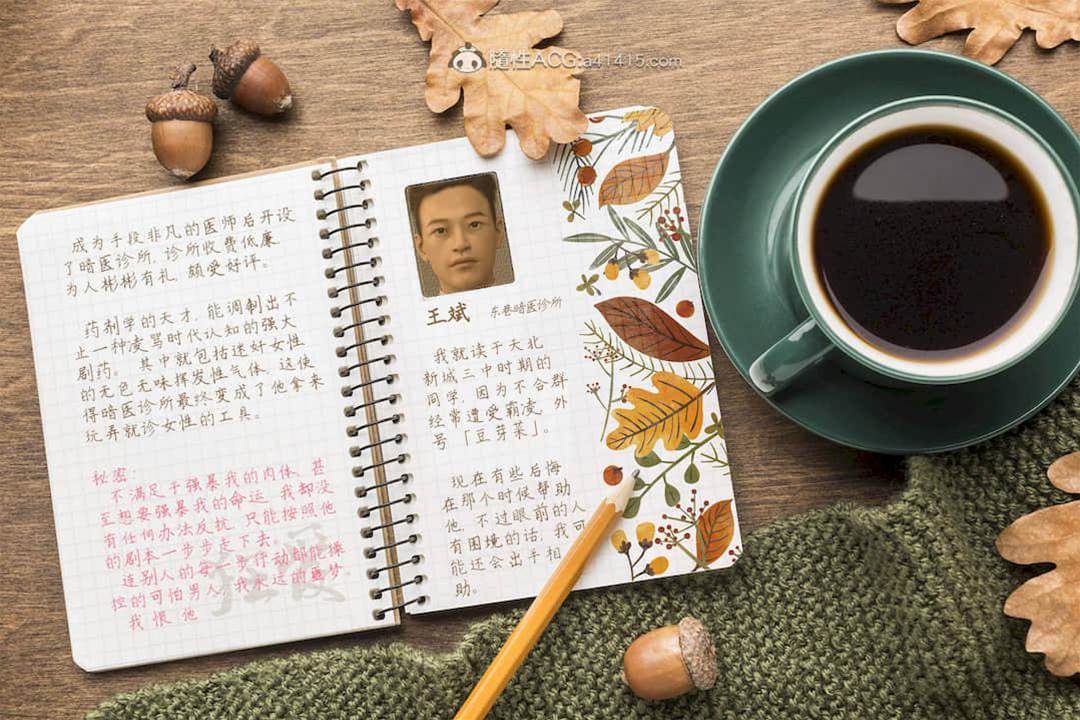 隨性ACG:a41415.com
成为手段非凡的医师后开设
了暗医诊所,诊所收费低廉
为人彬彬有礼,颇受好评。
药剂学的天才,能调制出不
止一种凌驾时代认知的强大
剧药。其中就包括迷奸女性
的无色无味挥发性气体,这使
得暗医诊所最终变成了他拿来
玩弄就诊女性的工具。
秘密:
不满足于强暴我的肉体,甚
至想要强暴我的命运,我却没
有任何办法反抗,只能按照他
的剧本一步步走下去。
连别人的每一步行动都能操
控的可怕男人,我永远的噩梦。
我 恨 他
王斌 东巷暗医诊所
我就读于天北
新城三中时期的
同学,因为不合群
经常遭受霸凌,外
号「豆芽菜」。
现在有些后悔
在那个时候帮助
他,不过眼前的人
有困境的话,我可
能还会出手相
助。